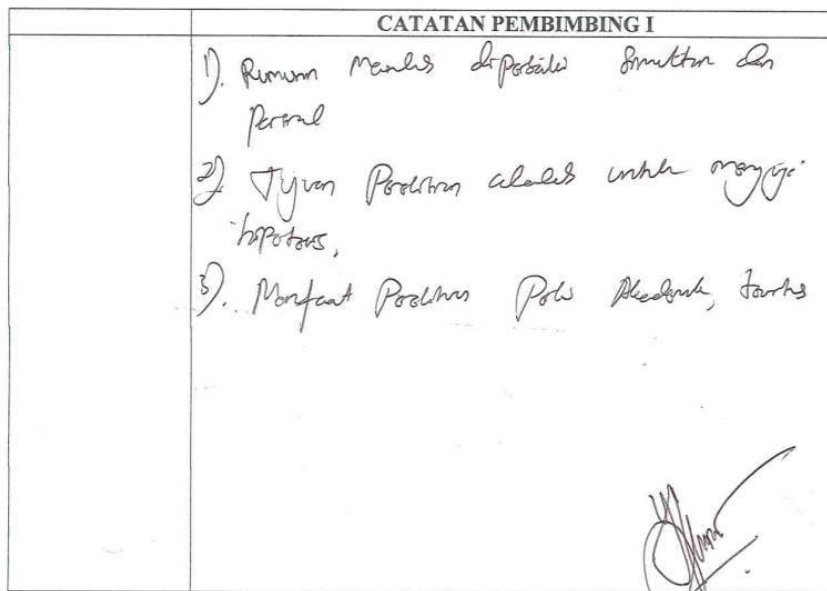 CATATAN PEMBIMBING I
1). Rumusan Masalah diperbaiki simultan dan
parsial
2). Tujuan Penelitian adalah untuk menguji
hipotesis,
3). Manfaat Penelitian Akademik,